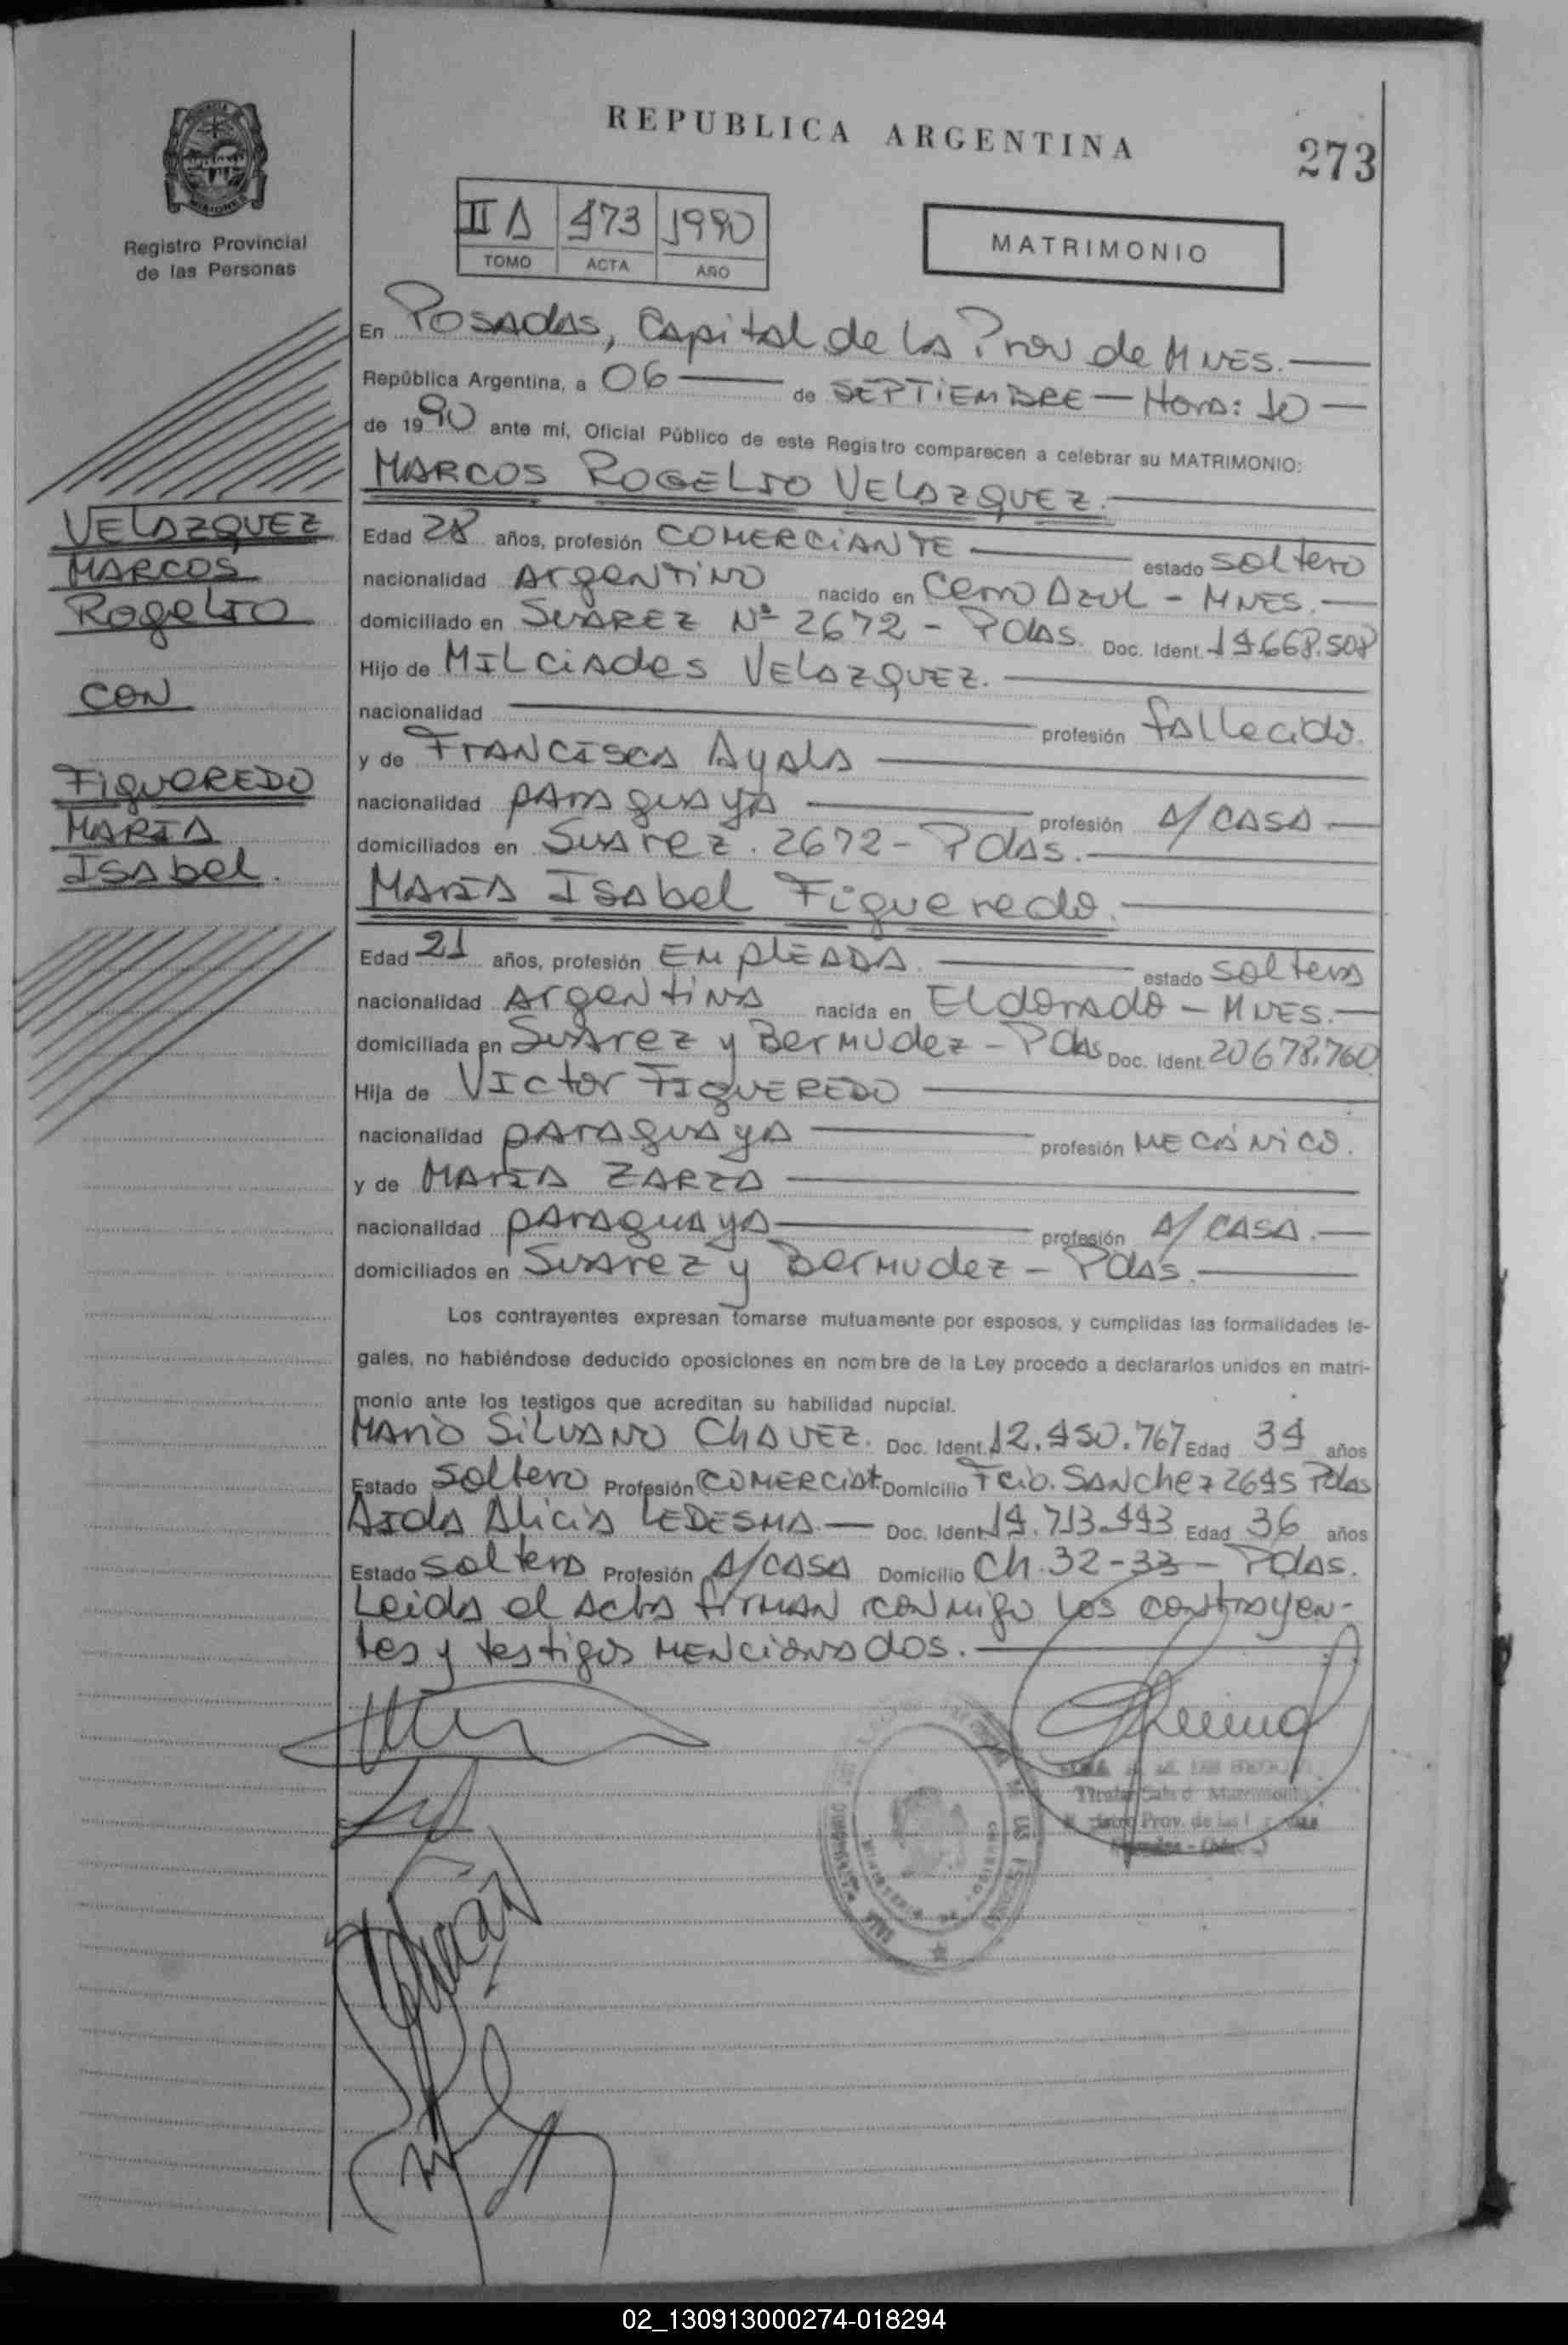 REPUBLICA ARGENTINA
273
Registro Provincial
de las Personas
II A 473 1990
TOMO ACTA AÑO
MATRIMONIO
En Posadas, Capital de la Prov de Mnes.
República Argentina, a 06 de SEPTIEMBRE - Hora: 10
de 1990 ante mí, Oficial Público de este Registro comparecen a celebrar su MATRIMONIO:
MARCOS ROGELIO VELAZQUEZ.
VELAZQUEZ
MARCOS
Rogelio
CON
FIGUEREDO
MARIA
ISABEL.
Edad 28 años, profesión COMERCIANTE estado soltero
nacionalidad Argentino nacido en Cerro Azul - Mnes.
domiciliado en SUAREZ Nº 2672 - Pdas. Doc. Ident. 14.668.508
Hijo de MILCIADES VELAZQUEZ.
nacionalidad profesión fallecido.
y de FRANCISCA Ayala
nacionalidad paraguaya profesión A/CASA
domiciliados en Suarez. 2672 - Pdas.
MARIA Isabel Figueredo.
Edad 21 años, profesión EMPLEADA estado soltera
nacionalidad Argentina nacida en Eldorado - Mnes.
domiciliada en Suarez y Bermudez - Pdas Doc. Ident. 20678.760
Hija de Victor FIGUEREDO
nacionalidad paraguaya profesión MECÁNICO.
y de MARIA ZARZA
nacionalidad paraguaya profesión A/CASA.
domiciliados en Suarez y Bermudez - Pdas.
Los contrayentes expresan tomarse mutuamente por esposos, y cumplidas las formalidades le-
gales, no habiéndose deducido oposiciones en nombre de la Ley procedo a declararlos unidos en matri-
monio ante los testigos que acreditan su habilidad nupcial.
MARIO SILVANO CHAVEZ. Doc. Ident. 12.450.767 Edad 34 años
Estado soltero Profesión COMERCIAT. Domicilio Fcio. SANchez 2645 Pdas
AIDA Alicia LEDESMA. Doc. Ident. 14.713.443 Edad 36 años
Estado soltera Profesión A/CASA Domicilio Ch. 32-33 - Pdas.
Leida el acta firman conmigo los contrayen-
tes y testigos mencionados.
Titular Sala d Matrimonio
Prov. de las
02_130913000274-018294